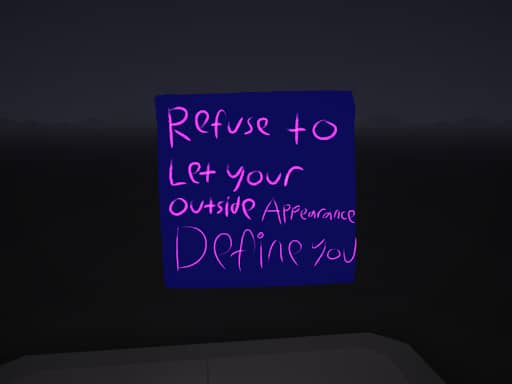 Refuse to
Let your
outside Appearance
Define you